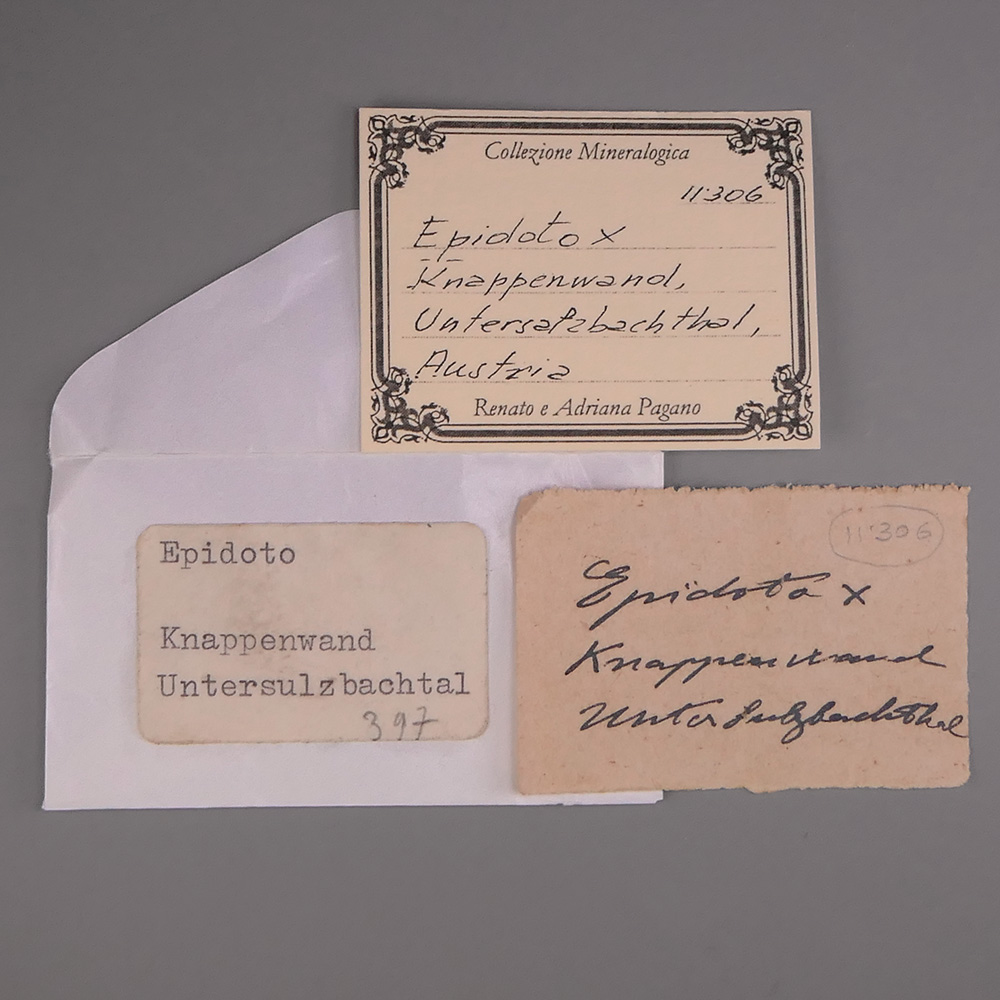 Collezione Mineralogica
11'306
Epidoto x
Knappenwand,
Untersalzbachthal,
Austria
Renato e Adriana Pagano
Epidoto
Knappenwand
Untersulzbachtal
397
11'306
Epidoto x
Knappenwand
Untersulzbachthal